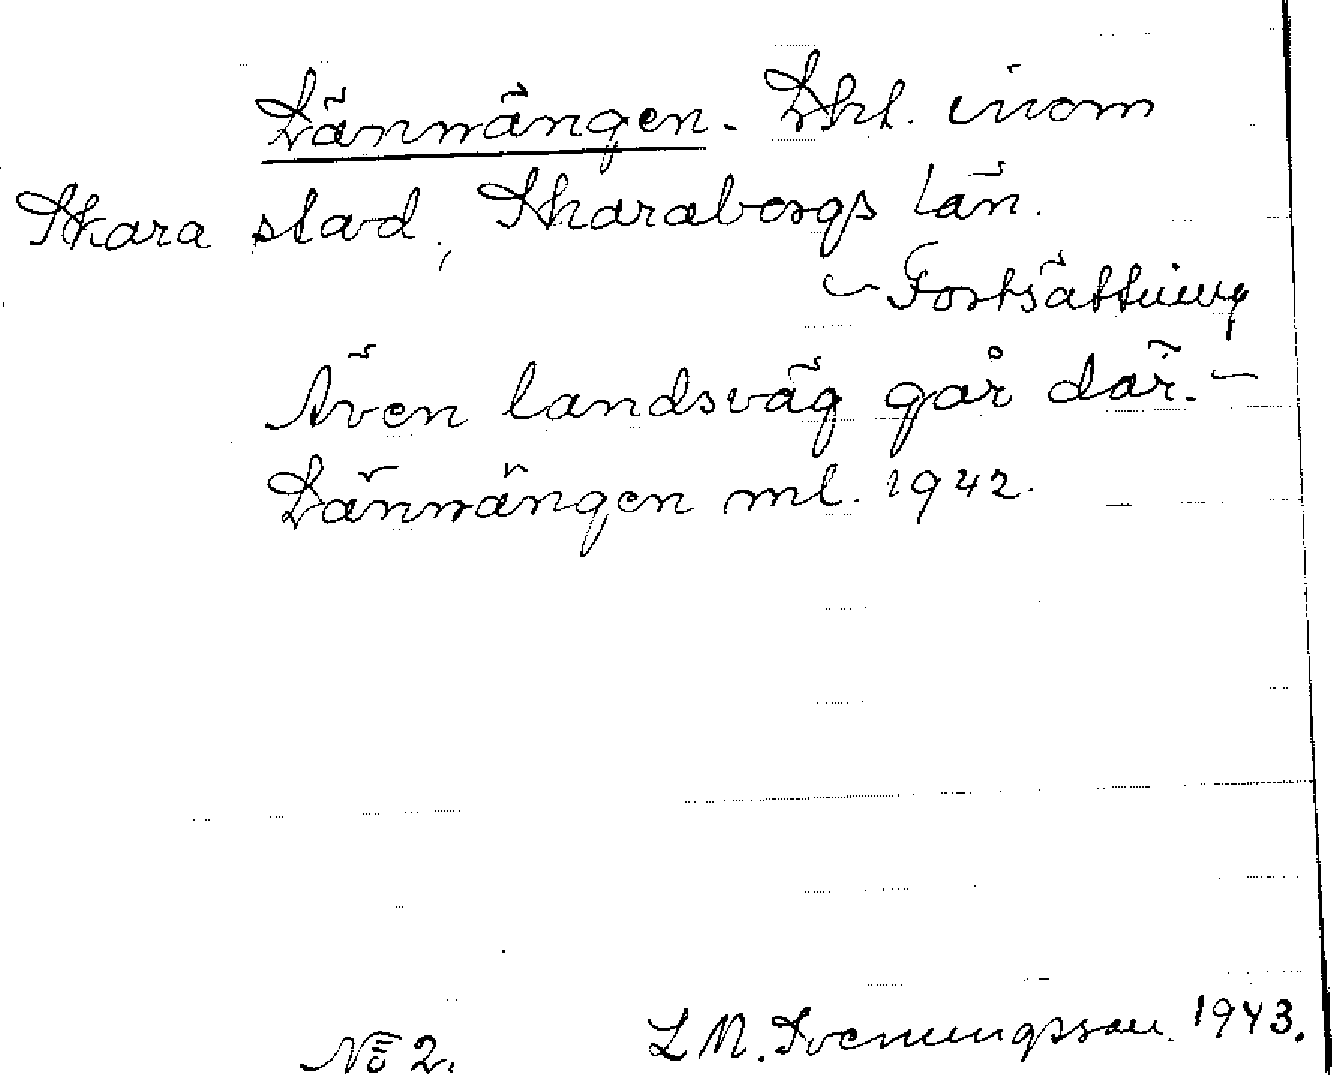 Lännängen. Skt. inom
Skara stad, Skaraborgs län.
– Fortsättning
Även landsväg går där. –
Lännängen ml. 1942.
No 2. L M. Svenungsson. 1943.